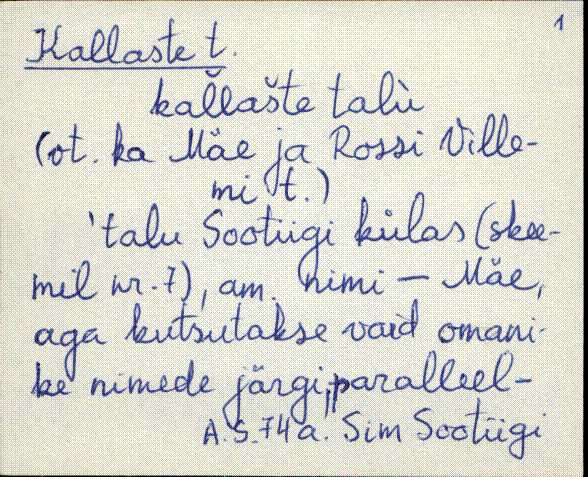 1
Kallaste t.
kal̆lašte talù
(vt. ka Mäe ja Rossi Ville-
mi t.)
'talu Sootiigi külas (skee-
mil nr. 7), am. nimi – Mäe,
aga kutsutakse vaid omani-
ke nimede järgi, paralleel-
A.S. 74 a. Sim Sootiigi